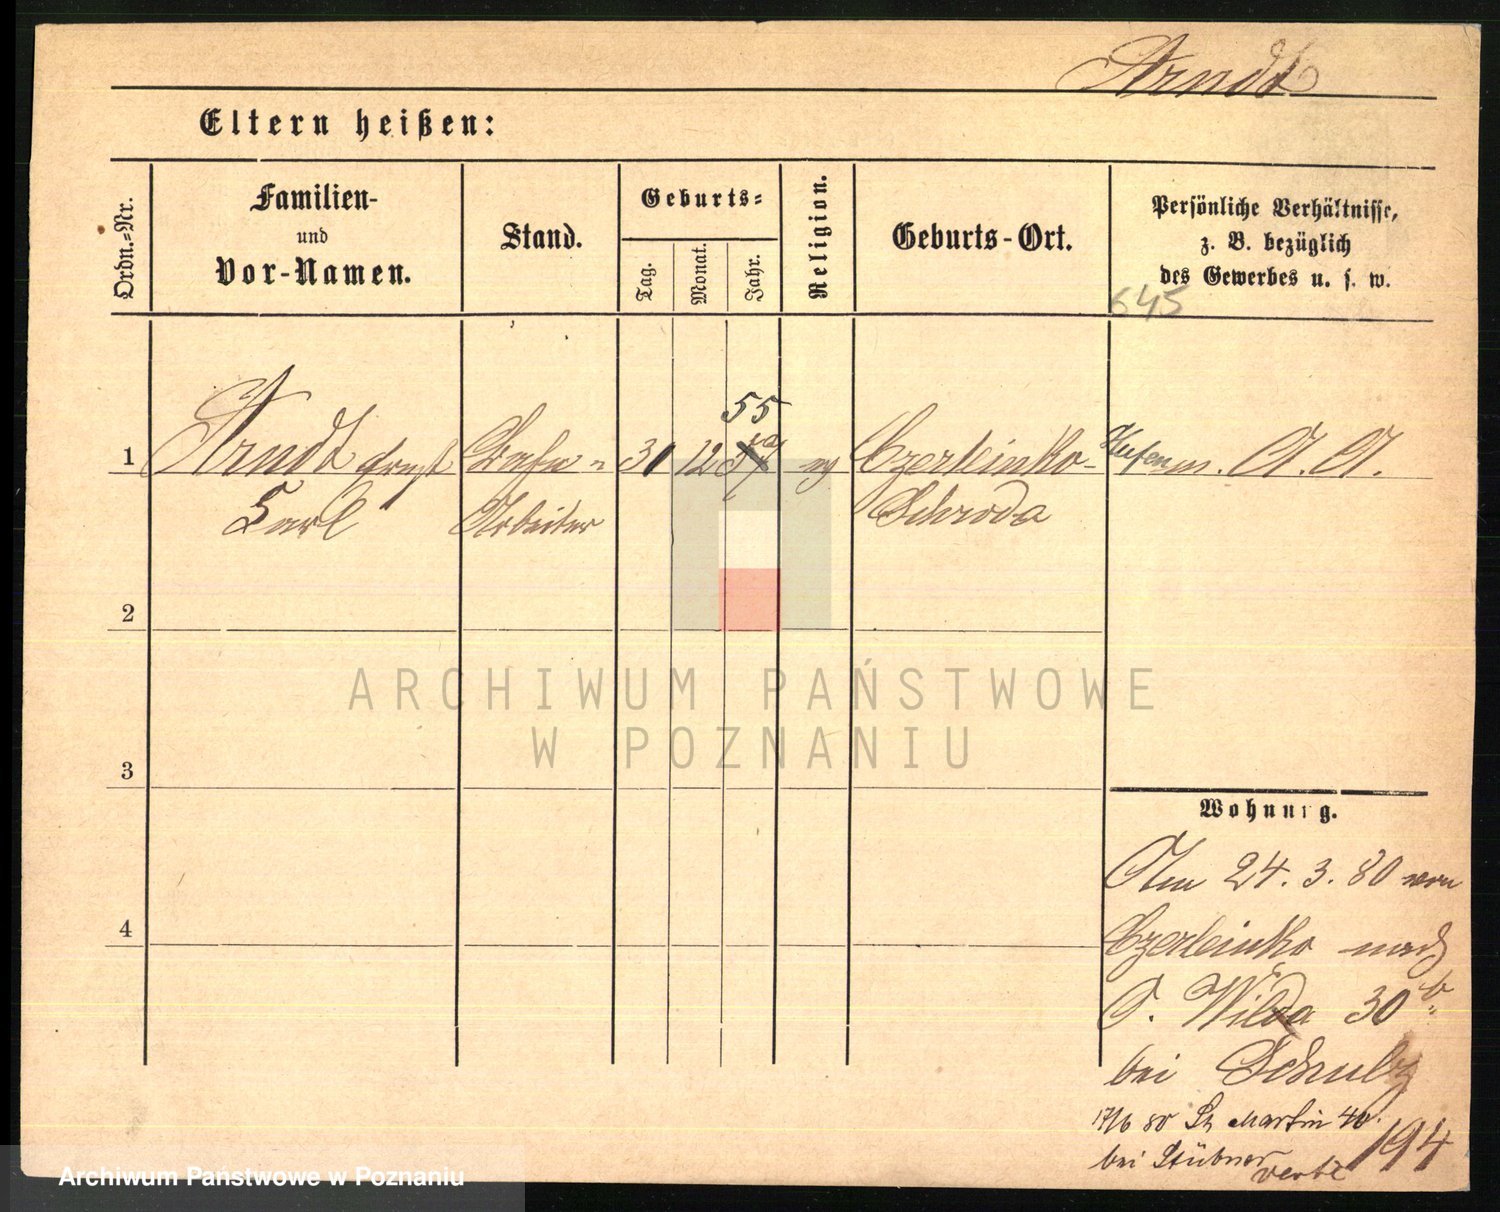 Arndt
Eltern heißen:
Ordn.-Nr.
Familien-
und
Vor-Namen.
Stand.
Geburts-
Tag.
Monat.
Jahr.
Religion.
Geburts-Ort.
Persönliche Verhältnisse,
z. B. bezüglich
des Gewerbes u. s. w.
645
55
1 Arndt Ernst 31 12 Czerleinko- A. A.
Carl Arbeiter Schroda
2
3
4
ARCHIWUM PAŃSTWOWE
W POZNANIU
Wohnung.
Am 24. 3. 80 von
Czerleinko nach
O. Wilda 30b
bei Schulz
17/6 80 St Martin 40.
bei Stübner
194
Archiwum Państwowe w Poznaniu